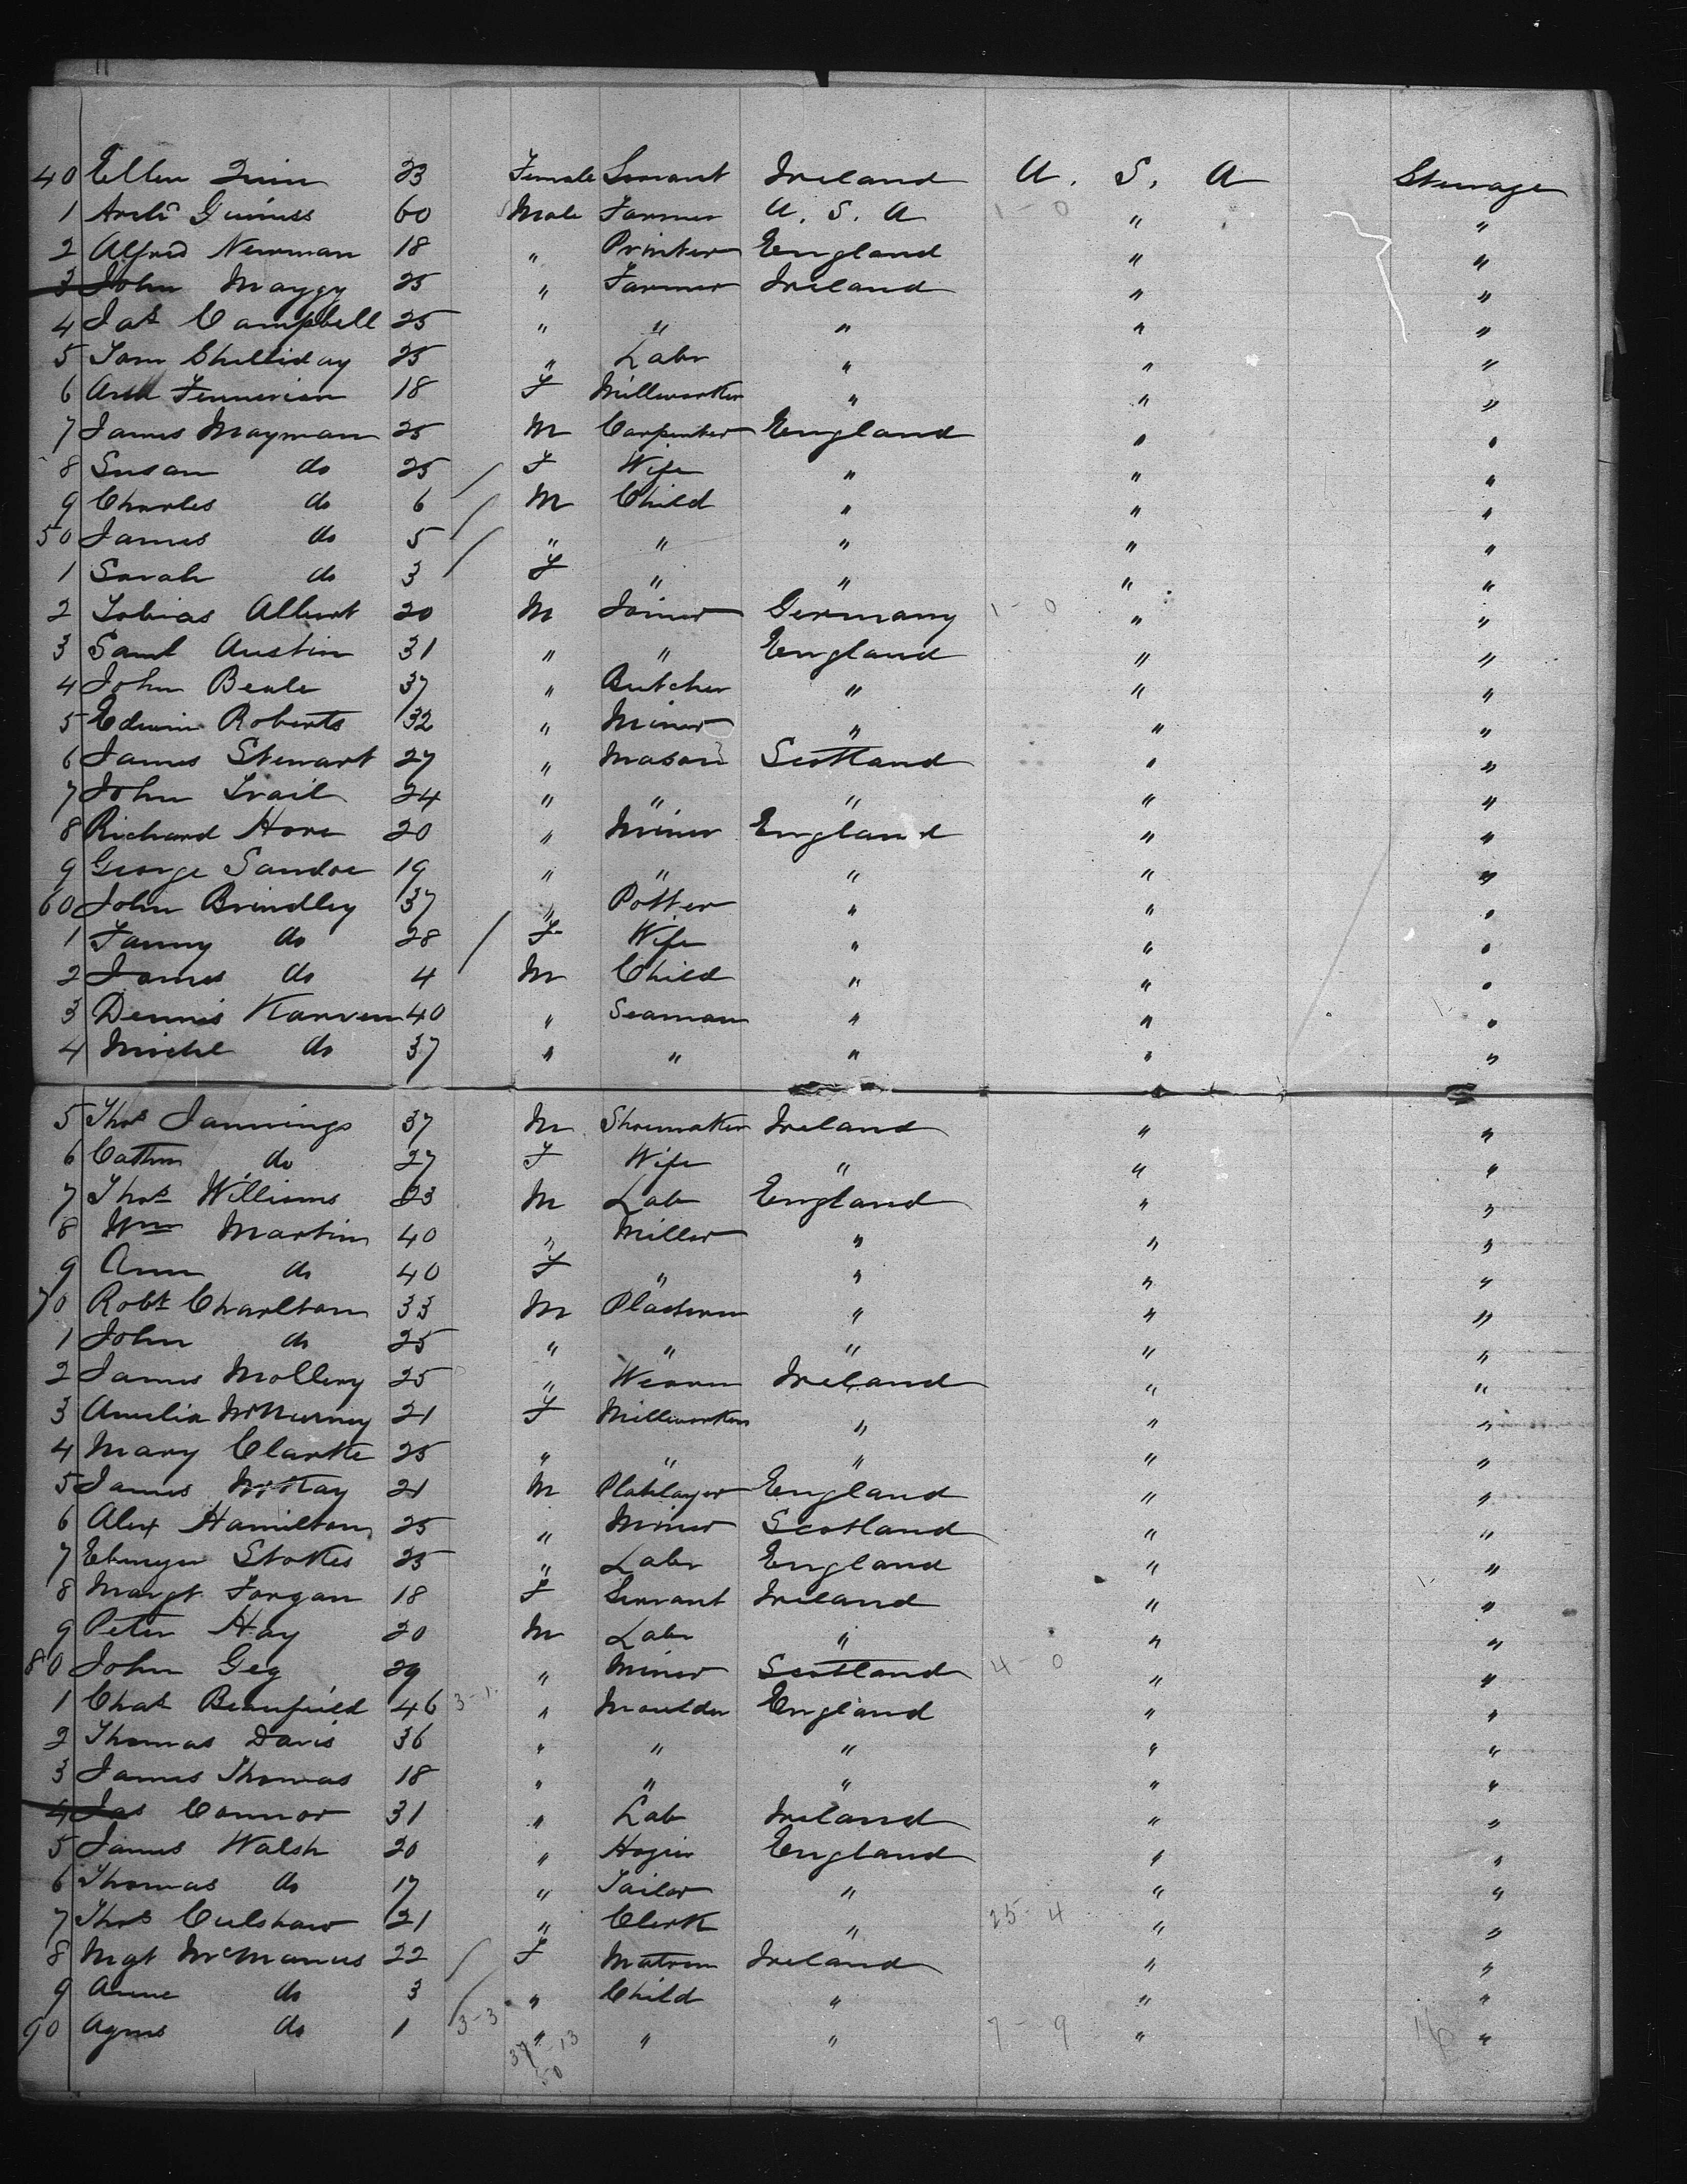 40 Ellen Quinn 23 Female Servant Ireland U. S. A Steerage
1 Guiniss 60 Male Farmer U. S. A 1-0 " "
2 Alfred Newman 18 " Printer England " "
3 John Maygy 25 " Farmer Ireland " "
4 Jas Campbell 25 " " " " "
5 Tom Shelliday 25 " Labr " " "
6 18 F Millworker " " "
7 James Mayman 25 M Carpenter England " "
8 Susan do 25 F Wife " " "
9 Charles do 6 M Child " " "
50 James do 5 " " " " "
1 Sarah do 3 F " " " "
2 Tobias Albert 20 M Joiner Germany 1-0 " "
3 Saml Austin 31 " " England " "
4 John Beale 37 " Butcher " " "
5 Edwin Roberts 32 " Miner " " "
6 James Stewart 27 " Mason Scotland " "
7 John Trail 24 " " " " "
8 Richard Hore 20 " Miner England " "
9 George Sandoe 19 " " " " "
60 John Brindley 37 " Potter " " "
1 Fanny do 28 F Wife " " "
2 James do 4 M Child " " "
3 Dennis Karven 40 " Seaman " " "
4 Michl do 37 " " " " "
5 Thos Jannings 37 M Shoemaker Ireland " "
6 Cathrn do 27 F Wife " " "
7 Thos Williams 23 M Lab England " "
8 Wm Martin 40 " Miller " " "
9 Ann do 40 F " " " "
70 Robt Charlton 33 M Plasterer " " "
1 John do 25 " " " " "
2 James Mollery 25 " Weaver Ireland " "
3 Amelia McNurney 21 F Millworker " " "
4 Mary Clarke 25 " " " " "
5 James McKay 21 M Platelayer England " "
6 Alex Hamilton 25 " Miner Scotland " "
7 Stokes 25 " Labr England " "
8 Margt Forgan 18 F Servant Ireland " "
9 Peter Hay 20 M Labr " " "
80 John Geg 29 " Miner Scotland 4-0 " "
1 Chas Beaufield 46 3-1 " Moulder England " "
2 Thomas Davis 36 " " " " "
3 James Thomas 18 " " " " "
4 Jas Connor 31 " Lab Ireland " "
5 James Walsh 20 " England " "
6 Thomas do 17 " Tailor " " "
7 Thos Culshaw 21 " Clerk " 25-4 " "
8 Mgt McManus 22 F Matron Ireland " "
9 Anne do 3 " Child " " "
90 Agnes do 1 3-3 " " " 7-9 " 16 "
37-13
50